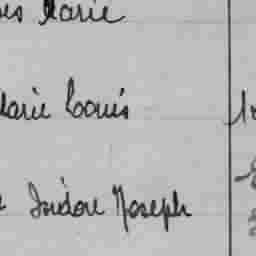 Marie
Marie Louis
Isidore Joseph